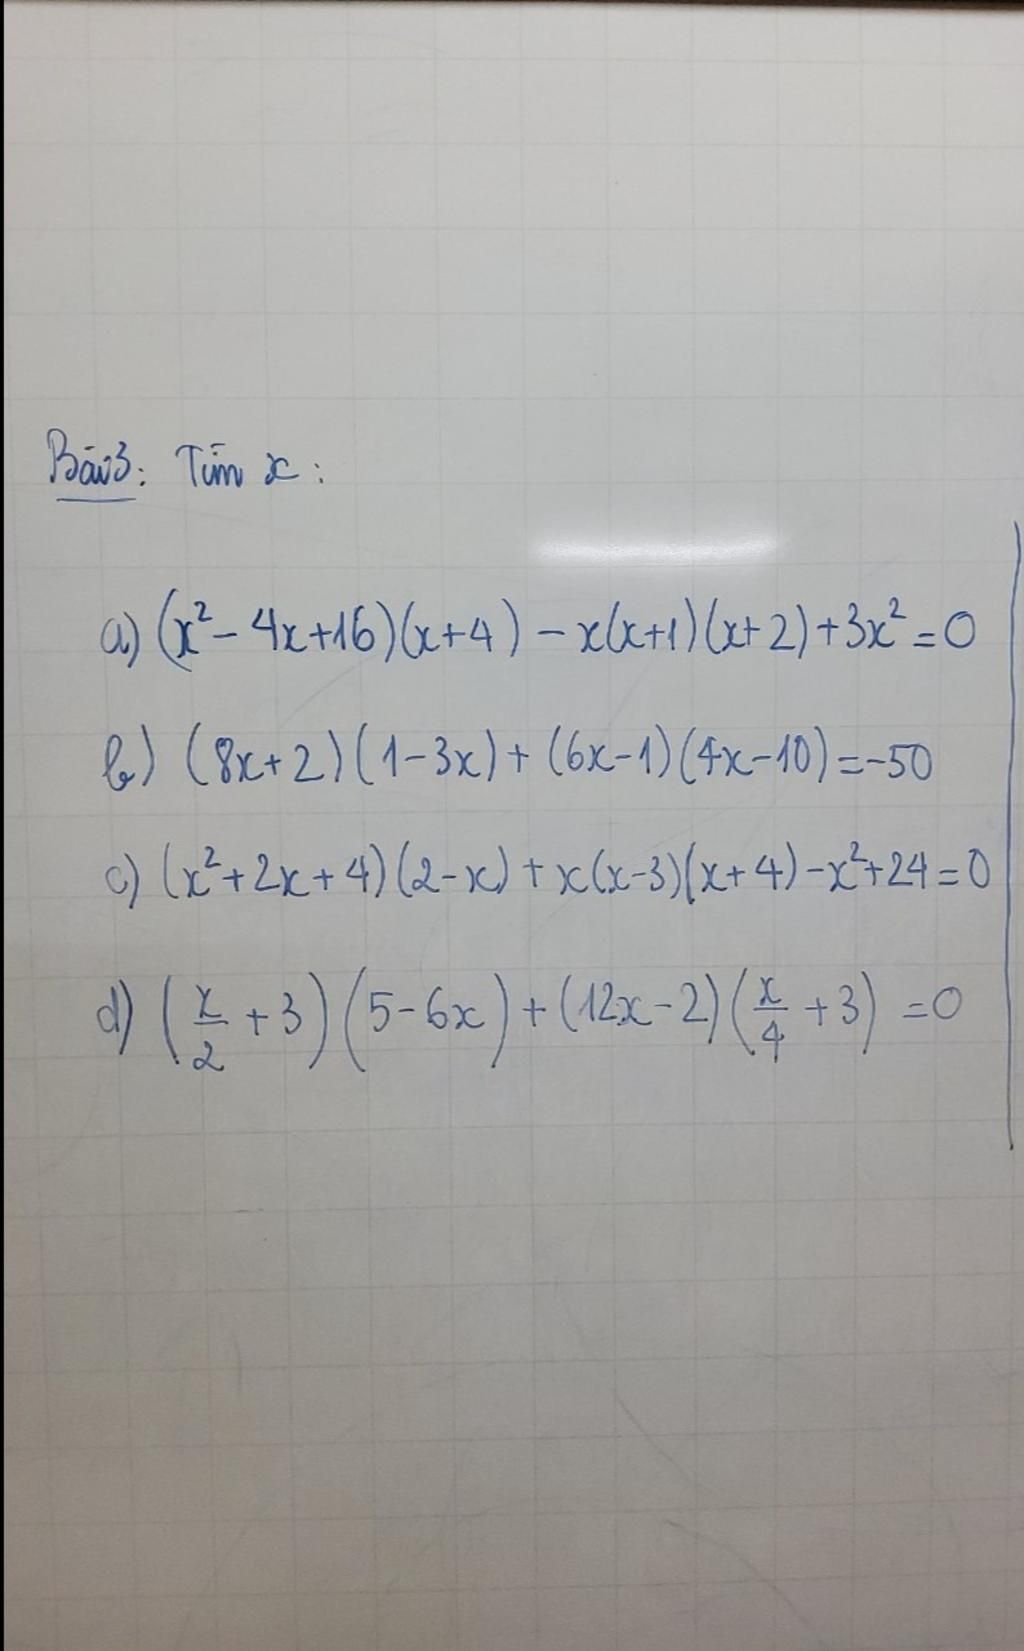 Bài 3: Tìm x:
a) (x² - 4x + 16)(x + 4) - x(x + 1)(x + 2) + 3x² = 0
b) (8x + 2)(1 - 3x) + (6x - 1)(4x - 10) = -50
c) (x² + 2x + 4)(2 - x) + x(x - 3)(x + 4) - x² + 24 = 0
d) (x/2 + 3)(5 - 6x) + (12x - 2)(x/4 + 3) = 0